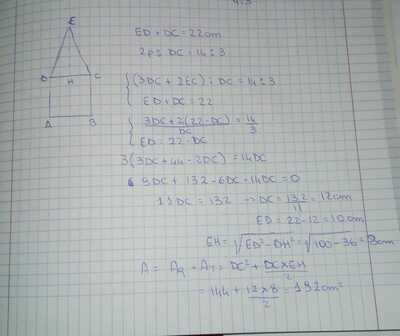 E
D
H
C
A
B
ED + DC = 22cm
2p : DC = 14 : 3
(3DC + 2EC) : DC = 14 : 3
ED + DC = 22
3DC + 2(22 - DC) / DC = 14 / 3
ED = 22 - DC
3(3DC + 44 - 2DC) = 14DC
9DC + 132 - 6DC - 14DC = 0
11DC = 132 → DC = 132 / 11 = 12cm
ED = 22 - 12 = 10cm
EH = √ED² - DH² = √100 - 36 = 8cm
A = Aq + AT = DC² + DC × EH / 2
= 144 + 12 × 8 / 2 = 192cm²